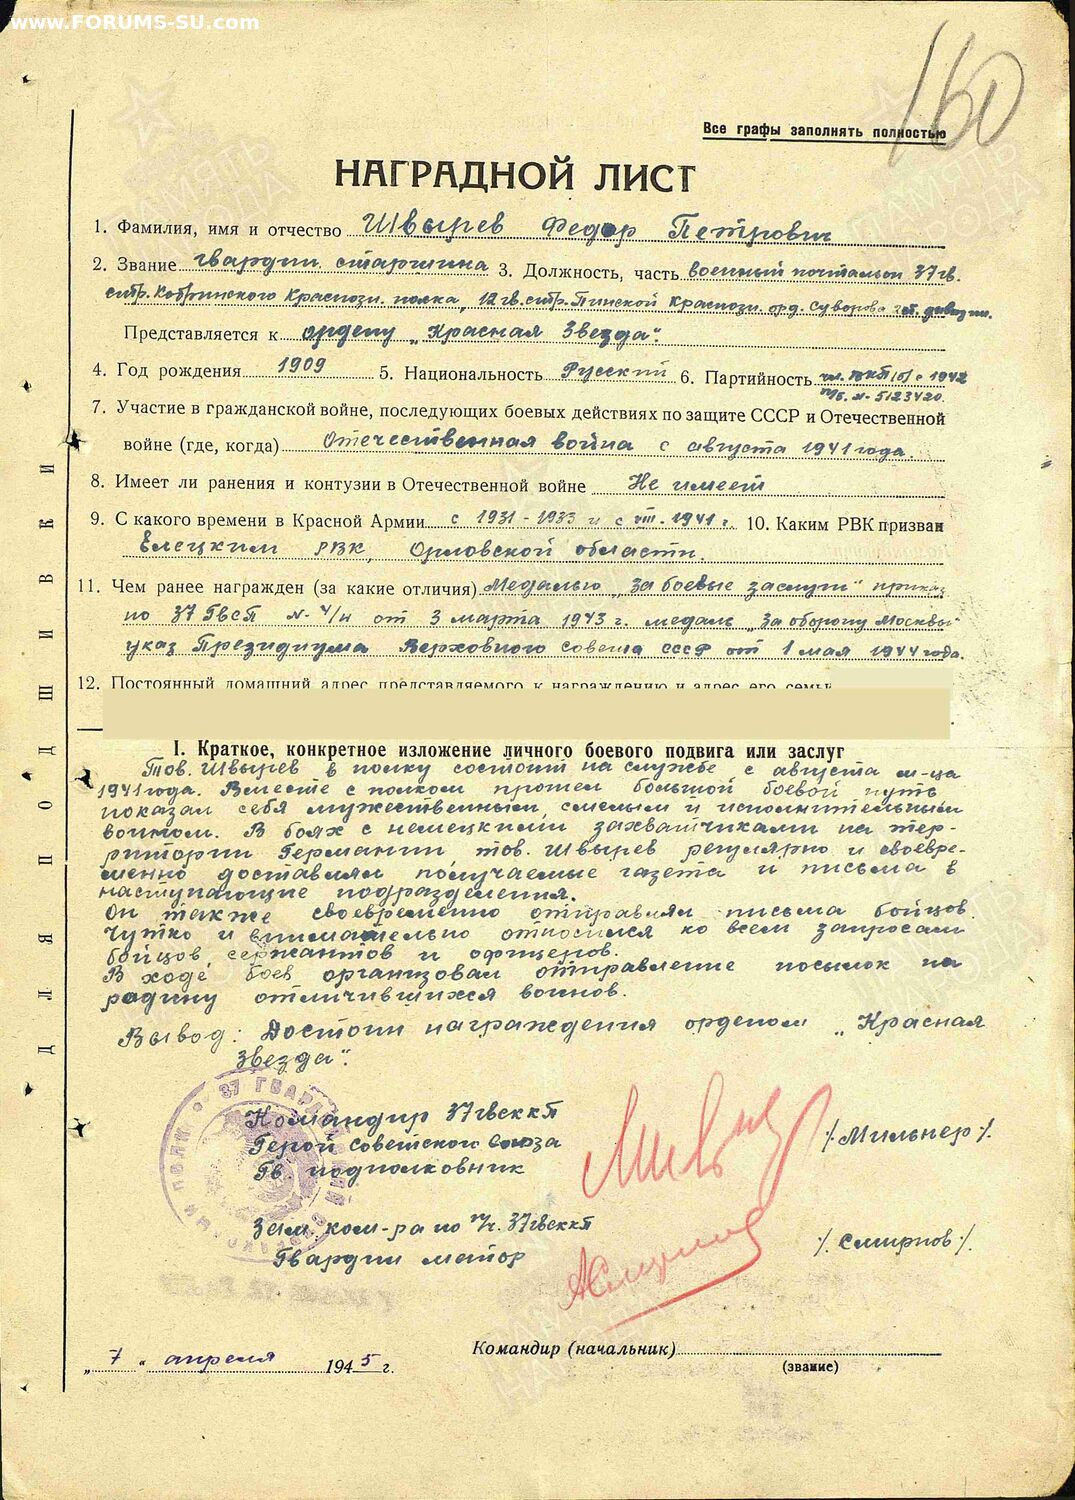 www.FORUMS-SU.com
160
Все графы заполнять полностью
НАГРАДНОЙ ЛИСТ
1. Фамилия, имя и отчество Швырев Федор Петрович
2. Звание гвардии старшина 3. Должность, часть военный почтальон 37 гв.
стр. Кобринского Краснозн. полка, 12 гв. стр. Пинской Краснозн. орд. Суворова
Представляется к ордену „Красная Звезда".
4. Год рождения 1909 5. Национальность Русский 6. Партийность чл. ВКП(б) с 1942
п/б. №-5123420.
7. Участие в гражданской войне, последующих боевых действиях по защите СССР и Отечественной
войне (где, когда) Отечественная война с августа 1941 года.
8. Имеет ли ранения и контузии в Отечественной войне Не имеет
9. С какого времени в Красной Армии с 1931-1933 и с VIII-1941 г. 10. Каким РВК призван
Елецким РВК, Орловской области.
11. Чем ранее награжден (за какие отличия) Медалью „За боевые заслуги" приказ
по 37 ГвСП №-4/н от 3 марта 1943 г. медаль „За оборону Москвы"
указ Президиума Верховного Совета СССР от 1 мая 1944 года.
12. Постоянный домашний адрес представляемого к награждению и адрес его семьи
I. Краткое, конкретное изложение личного боевого подвига или заслуг
Тов. Швырев в полку состоит на службе с августа м-ца
1941 года. Вместе с полком прошел большой боевой путь
показал себя мужественным, смелым и исполнительным
воином. В боях с немецкими захватчиками на тер-
ритории Германии, тов. Швырев регулярно и своевре-
менно доставлял получаемые газета и письма в
наступающие подразделения.
Он также своевременно отправлял письма бойцов.
Чутко и внимательно относился ко всем запросам
бойцов, сержантов и офицеров.
В ходе боев организовал отправление посылок на
родину отличившихся воинов.
Вывод: Достоин награждения орденом „Красная
Звезда".
Командир 37 гвсккп
Герой Советского Союза
Гв. подполковник
/Мильнер/.
Зам. ком-ра по п/ч. 37 гвсккп
Гвардии майор
/Смирнов/.
Командир (начальник)
„7" апреля 1945 г.
(звание)
ДЛЯ ПОДШИВКИ
37 ГВАРД